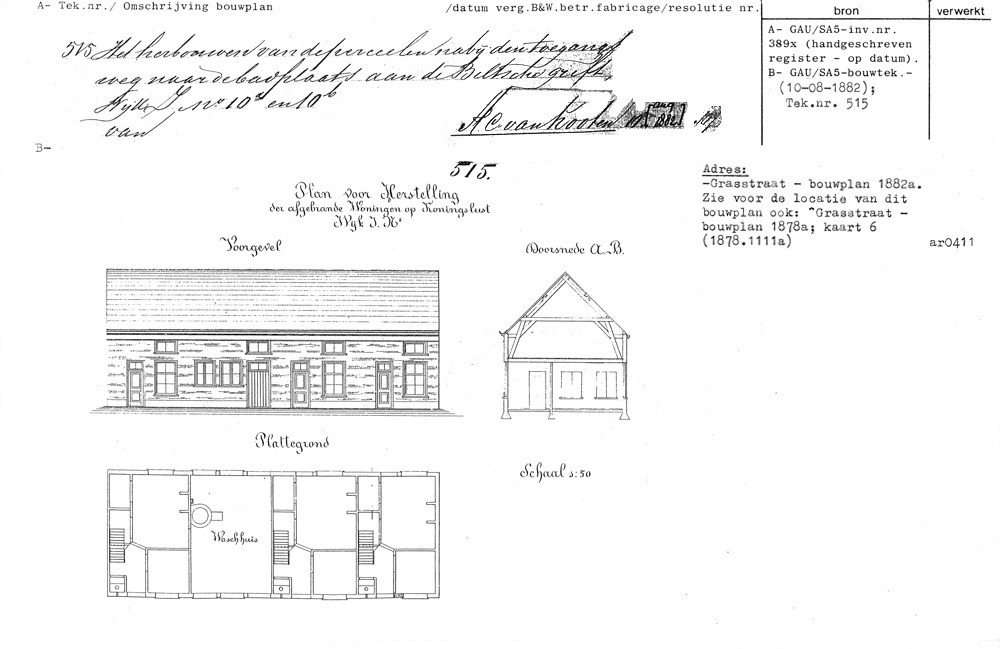 A- Tek.nr./ Omschrijving bouwplan /datum verg.B&W.betr.fabricage/resolutie nr.
bron
verwerkt
515 Het herbouwen van de perceelen nabij den toegangs
weg naar de badplaats aan de Biltsche grift,
Wijk I, No 10a en 10b
van A.C. van Kooten 10 aug 1882
A- GAU/SA5-inv.nr.
389x (handgeschreven
register - op datum).
B- GAU/SA5-bouwtek.-
(10-08-1882);
Tek.nr. 515
B-
515.
Plan voor Herstelling
der afgebrande Woningen op Koningslust
Wijk I. No
Adres:
-Grasstraat - bouwplan 1882a.
Zie voor de locatie van dit
bouwplan ook: ^Grasstraat -
bouwplan 1878a; kaart 6
(1878.1111a)
ar0411
Voorgevel
Doorsnede A.B.
Plattegrond
Schaal 1:50
Waschhuis